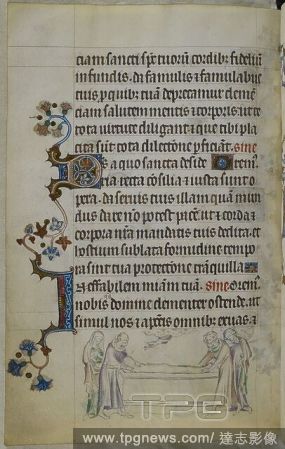 ciam sancti sp̄c tuorū cordib; fideliū
infundis. da famulis et famulabus
tuis p̄ quib; tuā deprecamur clemē
ciam salutem mentis et corporis: ut te
tota uirtute diligant et que tibi pla
cita sūt tota dilectione pficiāt. sine
Ds a quo sancta deside Orem;
ria recta cōsilia et iusta sunt o
pera. da seruis tuis illam quā mun
dus dare nō potest pacē: ut et corda et
corpora nr̄a mandatis tuis dedita. et
hostium sublata formidine tempo
ra sint tua protectione trāquilla
Ineffabilem miām tuā. sine Orem;
nobis domine clementer ostende. ut
simul nos et a pctīs omnib; exuas. et
TPG
www.tpgnews.com/ 達志影像